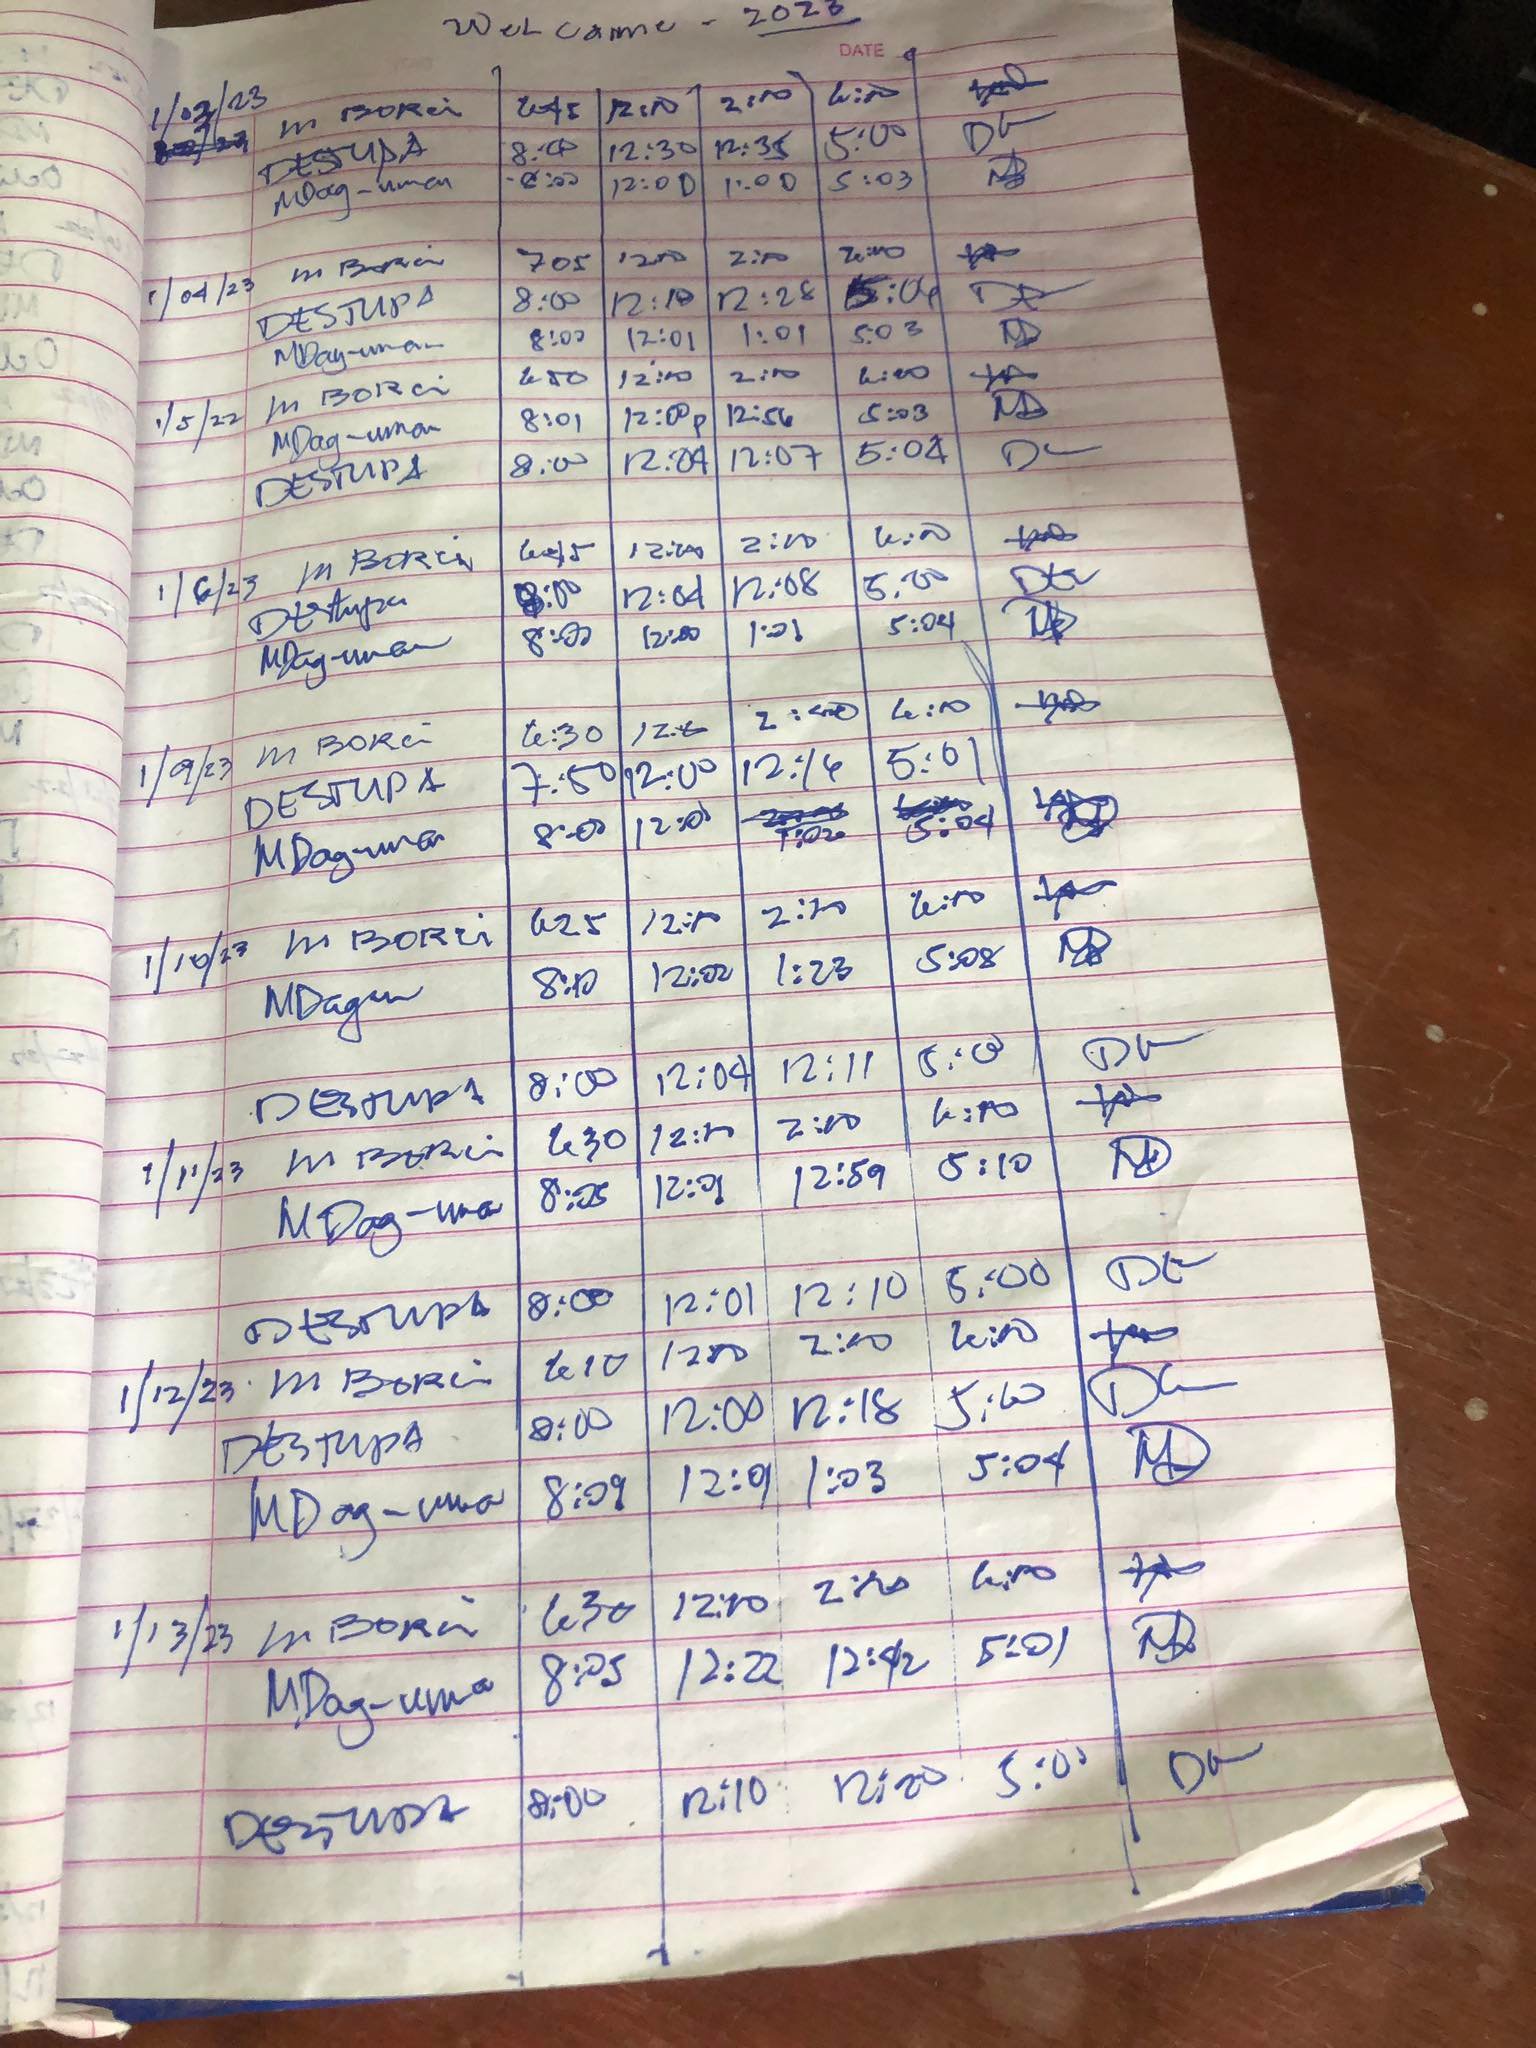 Welcame - 2023
DATE
1/03/23 M BORCI 6:45 12:00 2:00 6:00
DESTUPA 8:00 12:30 12:35 5:00 DE
MDag-uman 8:00 12:00 1:00 5:03 MD
M BORCI 705 1200 2:00 6:00
1/04/23 DESTUPA 8:00 12:10 12:28 5:04 DE
MDag-uman 8:00 12:01 1:01 5:03 MD
M BORCI 650 12:00 2:00 6:00
1/5/22 MDag-uman 8:01 12:00p 12:56 5:03 MD
DESTUPA 8:00 12:04 12:07 5:04 DE
M BORCI 645 12:00 2:00 6:00
1/6/23 DEstupa 8:00 12:04 12:08 5:00 DE
MDag-uman 8:00 12:00 1:01 5:04 MD
M BORCI 6:30 12:00 2:00 6:00
1/09/23 DESTUPA 7:50 12:00 12:16 5:01
MDag-uman 8:00 12:00 1:02 5:04
1/10/23 M BORCI 625 12:00 2:00 6:00
MDagun 8:10 12:02 1:23 5:08 MD
DESTUPA 8:00 12:04 12:11 5:00 DE
1/11/23 M BORCI 630 12:00 2:00 6:00
MDag-uma 8:05 12:01 12:59 5:10 MD
DESTUPA 8:00 12:01 12:10 5:00 DE
1/12/23 M BORCI 610 1200 2:00 6:00
DESTUPA 8:00 12:00 12:18 5:00 DE
MDag-uma 8:09 12:01 1:03 5:04 MD
1/13/23 M BORCI 630 12:00 2:00 6:00
MDag-uma 8:05 12:22 12:42 5:01 MD
DESTUPA 8:00 12:10 12:20 5:00 DE